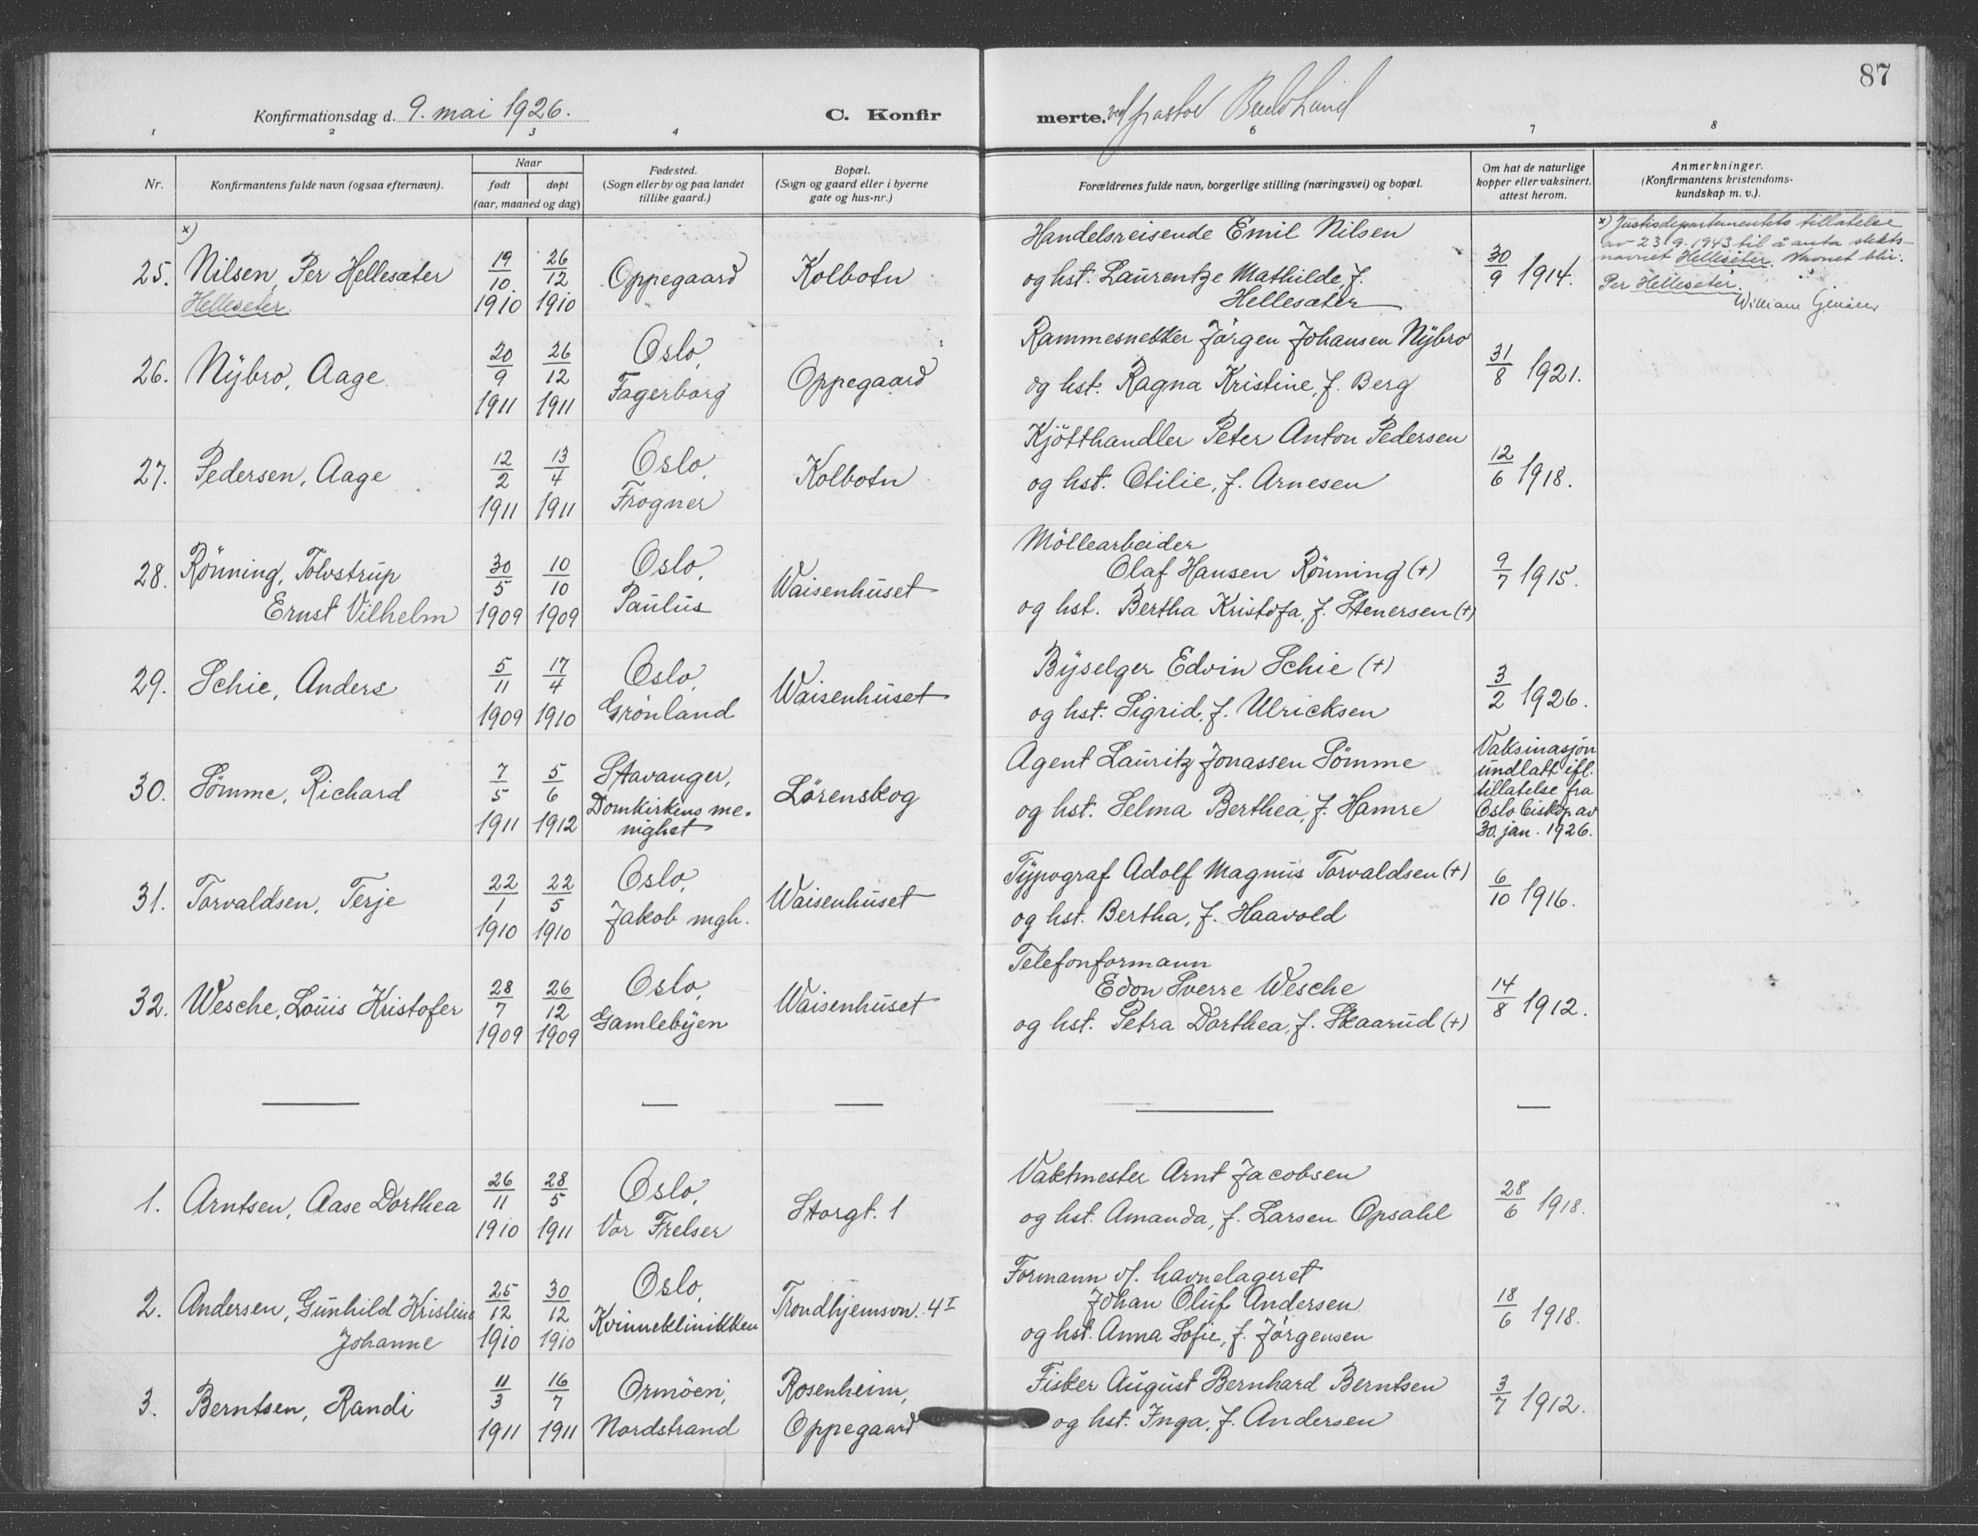 87
Konfirmationsdag d. 9. mai 1926. C. Konfirmerte. ved pastor Lund
1 2 3 4 5 6 7 8
Nr.
Konfirmantens fulde navn (ogsaa efternavn).
Naar
født døpt
(aar, maaned og dag)
Fødested.
(Sogn eller by og paa landet
tillike gaard.)
Bopæl.
(Sogn og gaard eller i byerne
gate og hus-nr.)
Forældrenes fulde navn, borgerlige stilling (næringsvei) og bopæl.
Om hat de naturlige
kopper eller vaksinert.
attest herom.
Anmerkninger.
(Konfirmantens kristendoms-
kundskap m. v.).
x)
25. Nilsen, Per Hellesæter 19/10 1910 26/12 1910 Oppegaard Kolbotn
Helleseter.
Handelsreisende Emil Nilsen
og hst. Laurentze Mathilde, f.
Hellesæter
30/9 1914.
x) Justisdepartementets tillatelse
av 23.9.1943 til å anta slekts-
navnet Helleseter. Navnet blir:
Per Helleseter.
William
26. Nÿbro, Aage 20/9 1911 26/12 1911 Oslo, Fagerborg Oppegaard
Rammesnekker Jörgen Johansen Nÿbro
og hst. Ragna Kristine, f. Berg
31/8 1921.
27. Pedersen, Aage 12/2 1911 13/4 1911 Oslo, Frogner Kolbotn
Kjötthandler Peter Anton Pedersen
og hst. Otilie, f. Arnesen
12/6 1918.
28. Rönning, Tolvstrup
Ernst Vilhelm 30/5 1909 10/10 1909 Oslo, Paulus Waisenhuset
Möllearbeider
Olaf Hansen Rönning (+)
og hst. Bertha Kristofa, f. Stenersen (+)
9/7 1915.
29. Schie, Anders 5/11 1909 17/4 1910 Oslo, Grönland Waisenhuset
Bÿselger Edvin Schie (+)
og hst. Sigrid, f. Ulricksen
3/2 1926.
30. Sömme, Richard 7/5 1911 5/6 1912 Stavanger,
Domkirkens me-
nighet Lörenskog
Agent Lauritz Jonassen Sömme
og hst. Selma Berthea, f. Hamre
Vaksinasjon
undlatt ifl.
tillatelse fra
Oslo biskop av
30. jan. 1926.
31. Torvaldsen, Terje 22/1 1910 22/5 1910 Oslo, Jakob mgh. Waisenhuset
Typograf Adolf Magnus Torvaldsen (+)
og hst. Bertha, f. Haavold
6/10 1916.
32. Wesche, Louis Kristofer 28/7 1909 26/12 1909 Oslo, Gamlebÿen Waisenhuset
Telefonformann
Edon Sverre Wesche
og hst. Petra Dorthea, f. Skaarud (+)
14/8 1912.
1. Arntsen, Aase Dorthea 26/11 1910 28/5 1911 Oslo, Vor Frelser Storgt. 1
Vaktmester Arnt Jacobsen
og hst. Amanda, f. Larsen Opsahl
28/6 1918.
2. Andersen, Gunhild Kristine
Johanne 25/12 1910 30/12 1910 Oslo, Kvinneklinikken Trondhjemsvn. 4 I
Formann v/. havnelageret
Johan Oluf Andersen
og hst. Anna Sofie, f. Jörgensen
18/6 1918.
3. Berntsen, Randi 11/3 1911 16/7 1911 Ormöen, Nordstrand Rosenheim, Oppegaard
Fisker August Bernhard Berntsen
og hst. Inga, f. Andersen
3/7 1912.